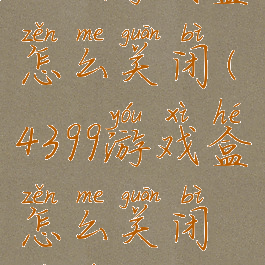 zěn me guān bì
怎么关闭(
yóu xì hé
4399游戏盒
zěn me guān bì
怎么关闭